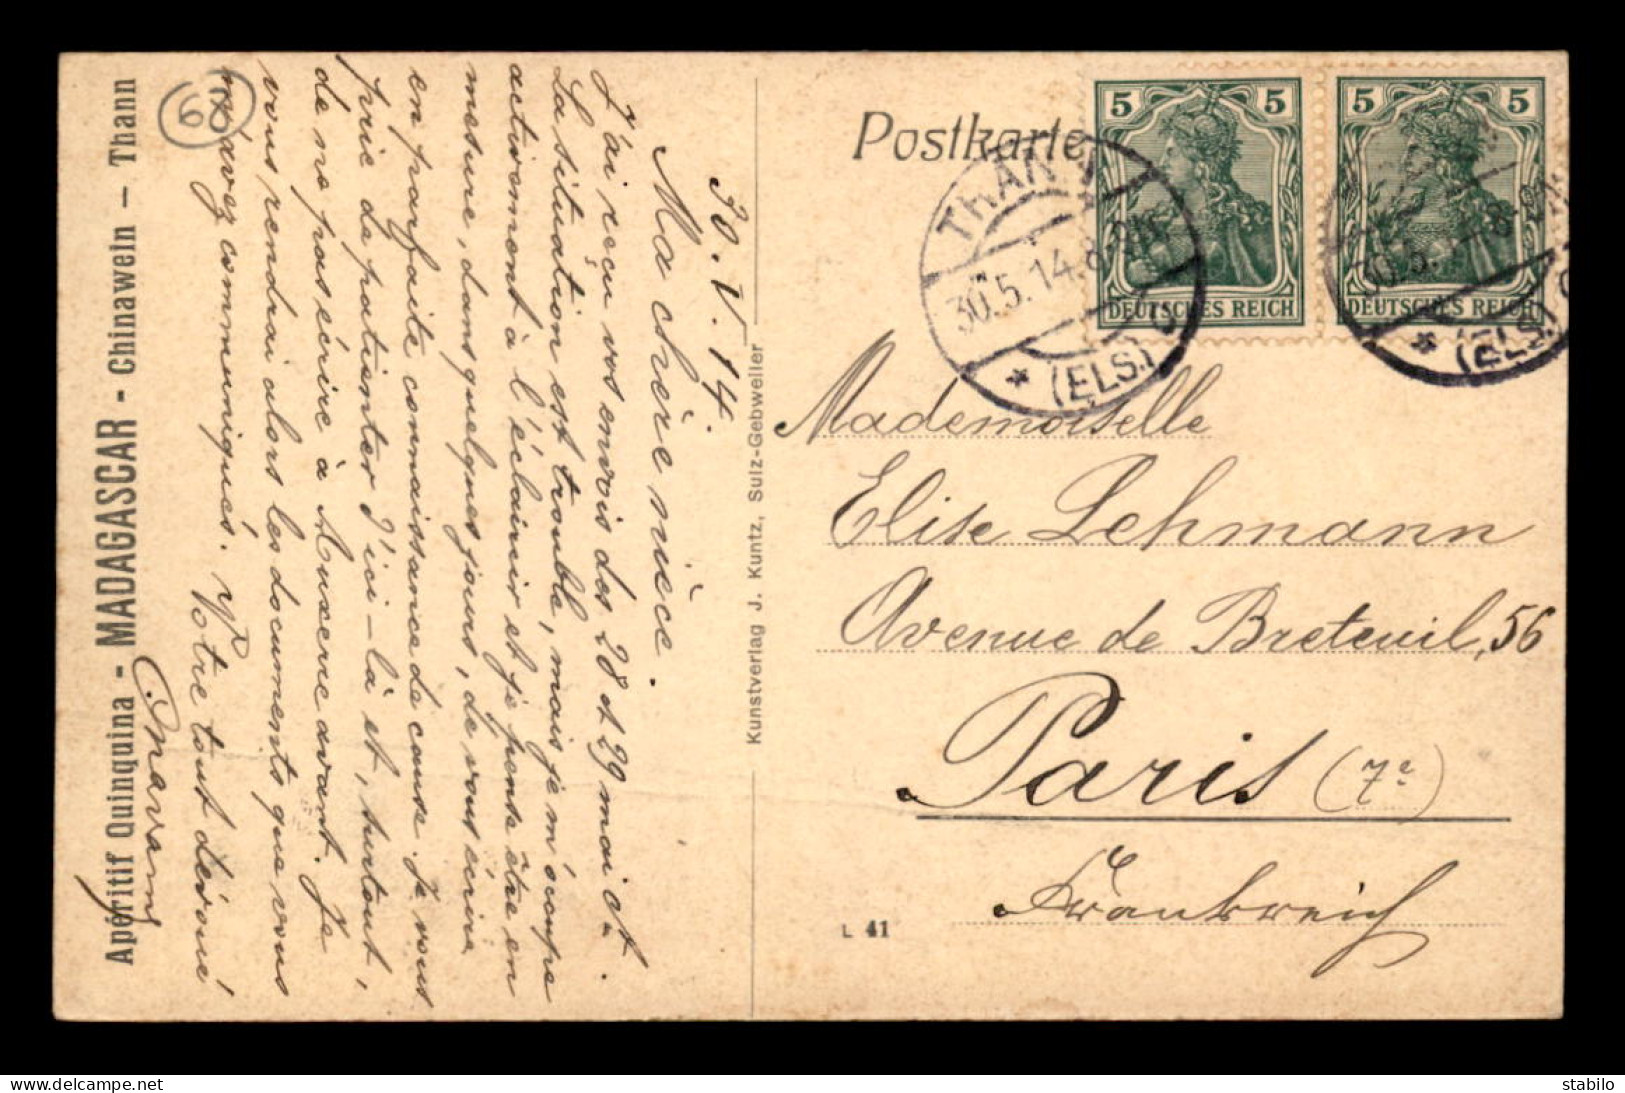 Postkarte
5 5
DEUTSCHES REICH
5 5
DEUTSCHES REICH
THANN
30.5.14.8-9N
* (ELS.)
30.5.
* (ELS.)
Mademoiselle
Elise Lehmann
Avenue de Breteuil, 56
Paris (7e)
Frankreich
L 41
Kunstverlag J. Kuntz, Sulz-Gebweiler
30.V.14.
Ma chère nièce.
J'ai reçu vos envois des 28 et 29 mai ct.
La situation est trouble, mais je m'occupe
activement à l'éclaircir et je pense être en
mesure, dans quelques jours, de vous écrire
en parfaite connaissance de cause. Je vous
prie de patienter d'ici-là et, surtout,
de ne pas écrire à avant. Je
vous rendrai alors les documents que vous
m'avez communiqués.
Votre tout dévoué
68
Apéritif Quinquina - MADAGASCAR - Chinawein - Thann
delcampe.net
stabilo